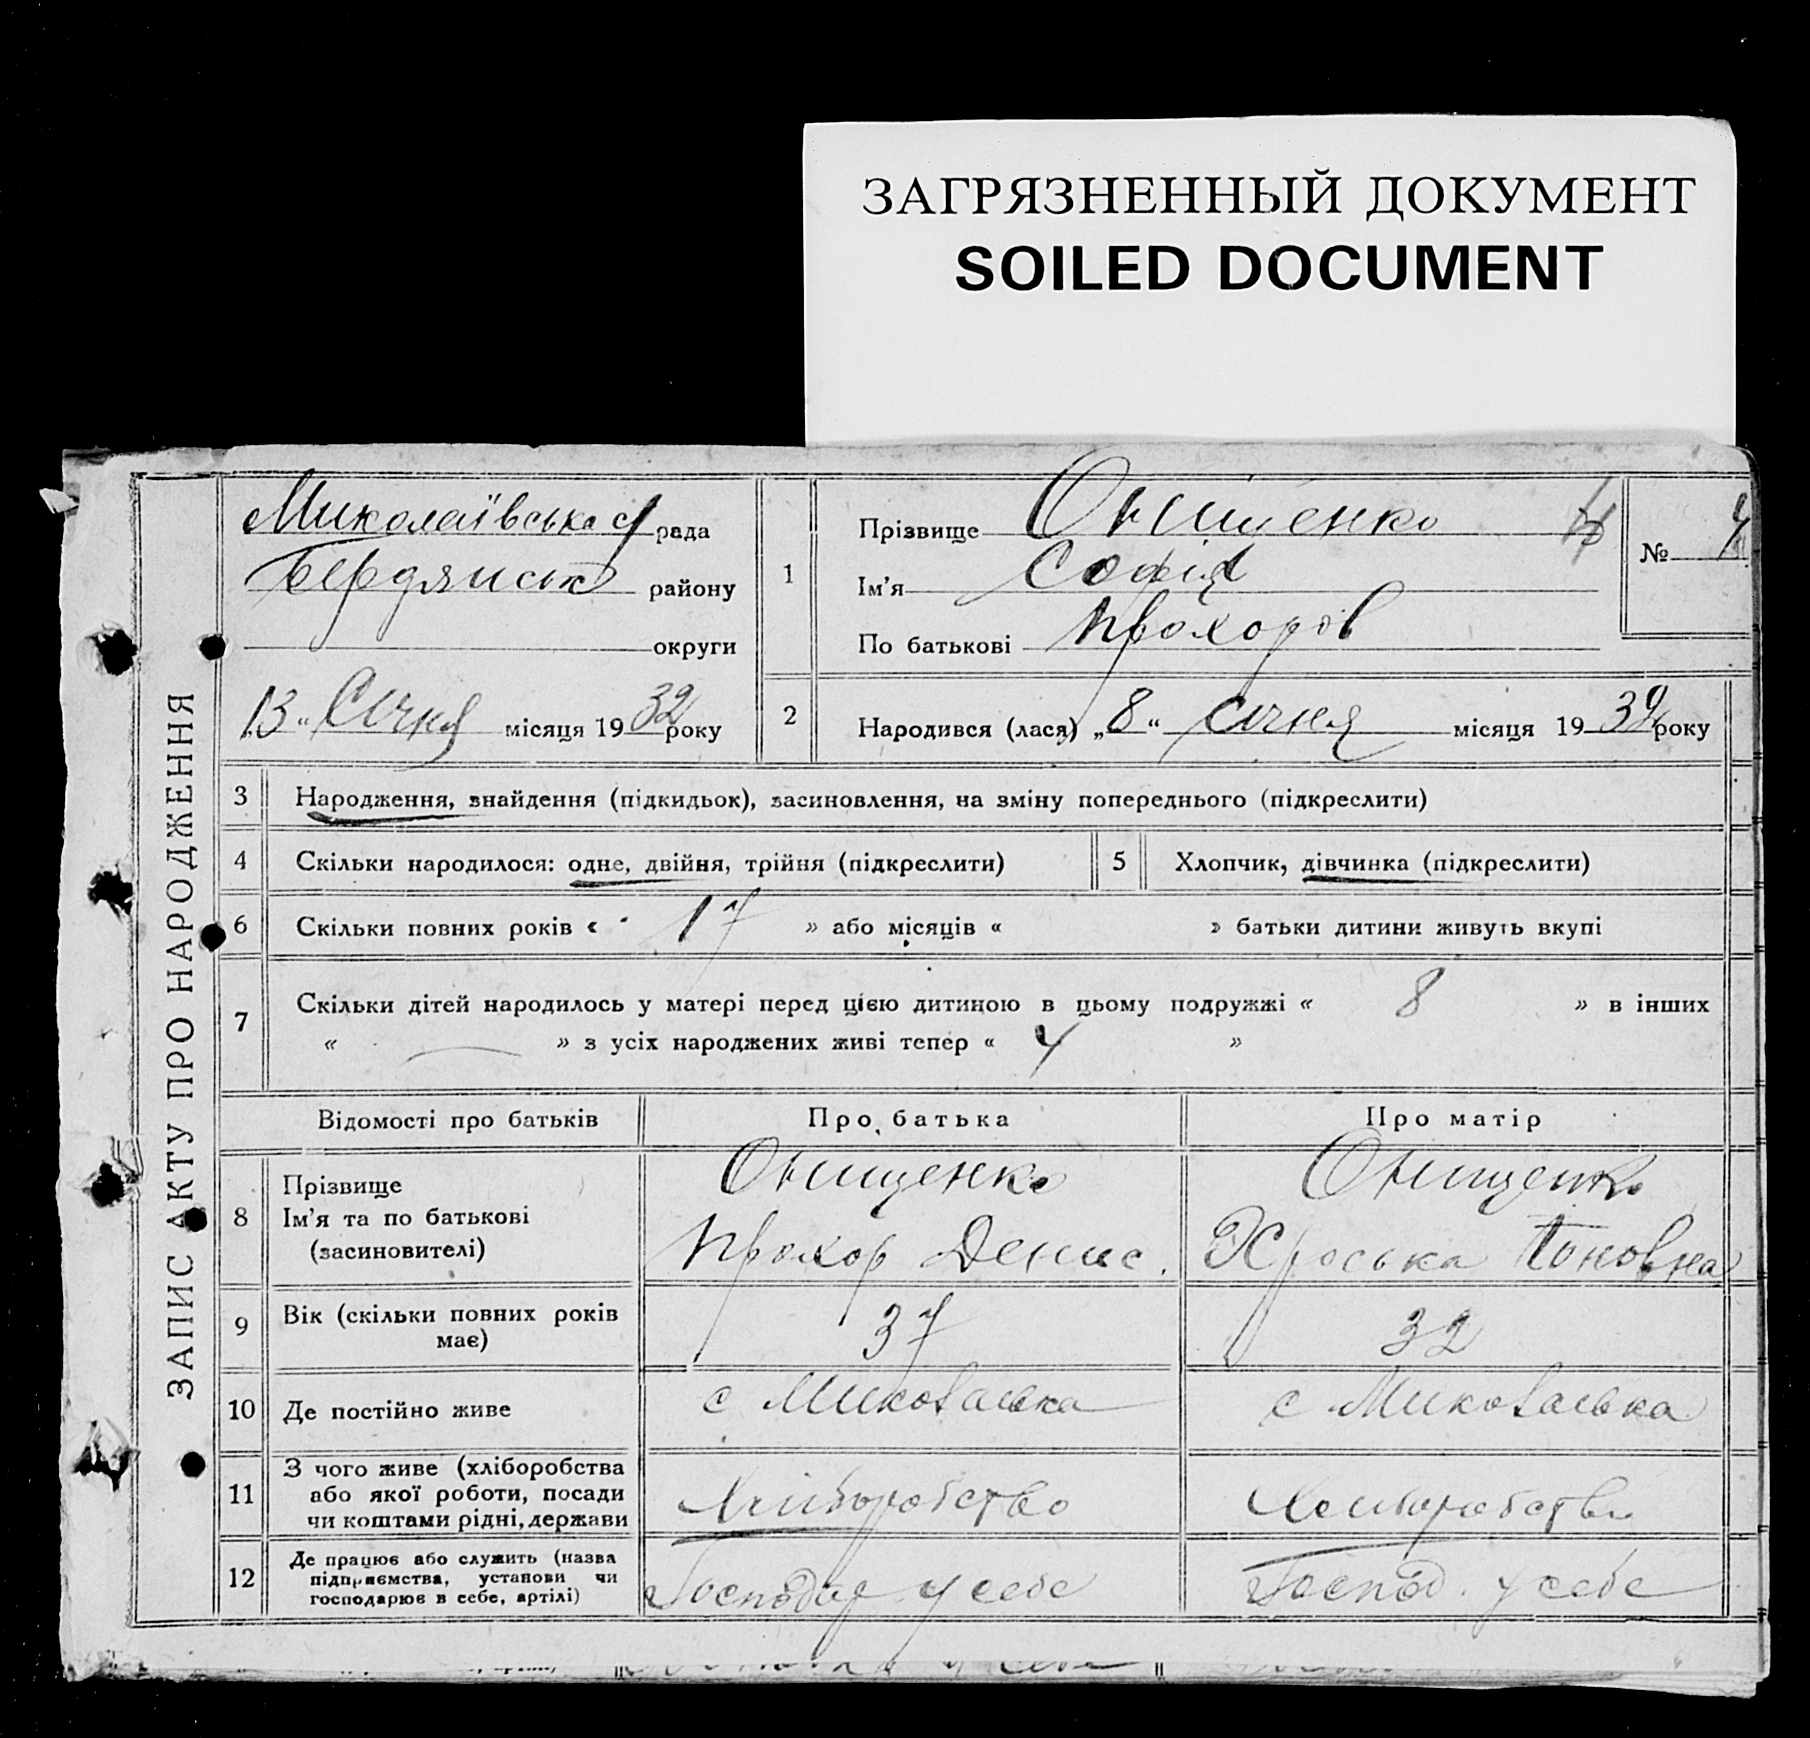 ЗАГРЯЗНЕННЫЙ ДОКУМЕНТ
SOILED DOCUMENT
ЗАПИС АКТУ ПРО НАРОДЖЕННЯ
Миколаївська с/рада
Бердянськ району
округи
13 " Січня місяця 1932 року
1
Прізвище Онищенко
Ім'я Софія
По батькові Прохоров
№ 4
2
Народився (лася) „8" січня місяця 1932 року
3 Народження, знайдення (підкидьок), засиновлення, на зміну попереднього (підкреслити)
4 Скільки народилося: одне, двійня, трійня (підкреслити)
5 Хлопчик, дівчинка (підкреслити)
6 Скільки повних років « 17 » або місяців « » батьки дитини живуть вкупі
7 Скільки дітей народилось у матері перед цією дитиною в цьому подружжі « 8 » в інших
« — » з усіх народжених живі тепер « 4 »
Відомості про батьків Про батька Про матір
8 Прізвище Онищенко Онищенко
Ім'я та по батькові Прохор Денис.
(засиновителі)
9 Вік (скільки повних років 37 32
має)
10 Де постійно живе с Миколаївка с Миколаївка
11 З чого живе (хліборобства
або якої роботи, посади Хліборобство Хліборобство
чи коштами рідні, держави
12 Де працює або служить (назва
підприємства, установи чи Господар у себе Господ. у себе
господарює в себе, артілі)